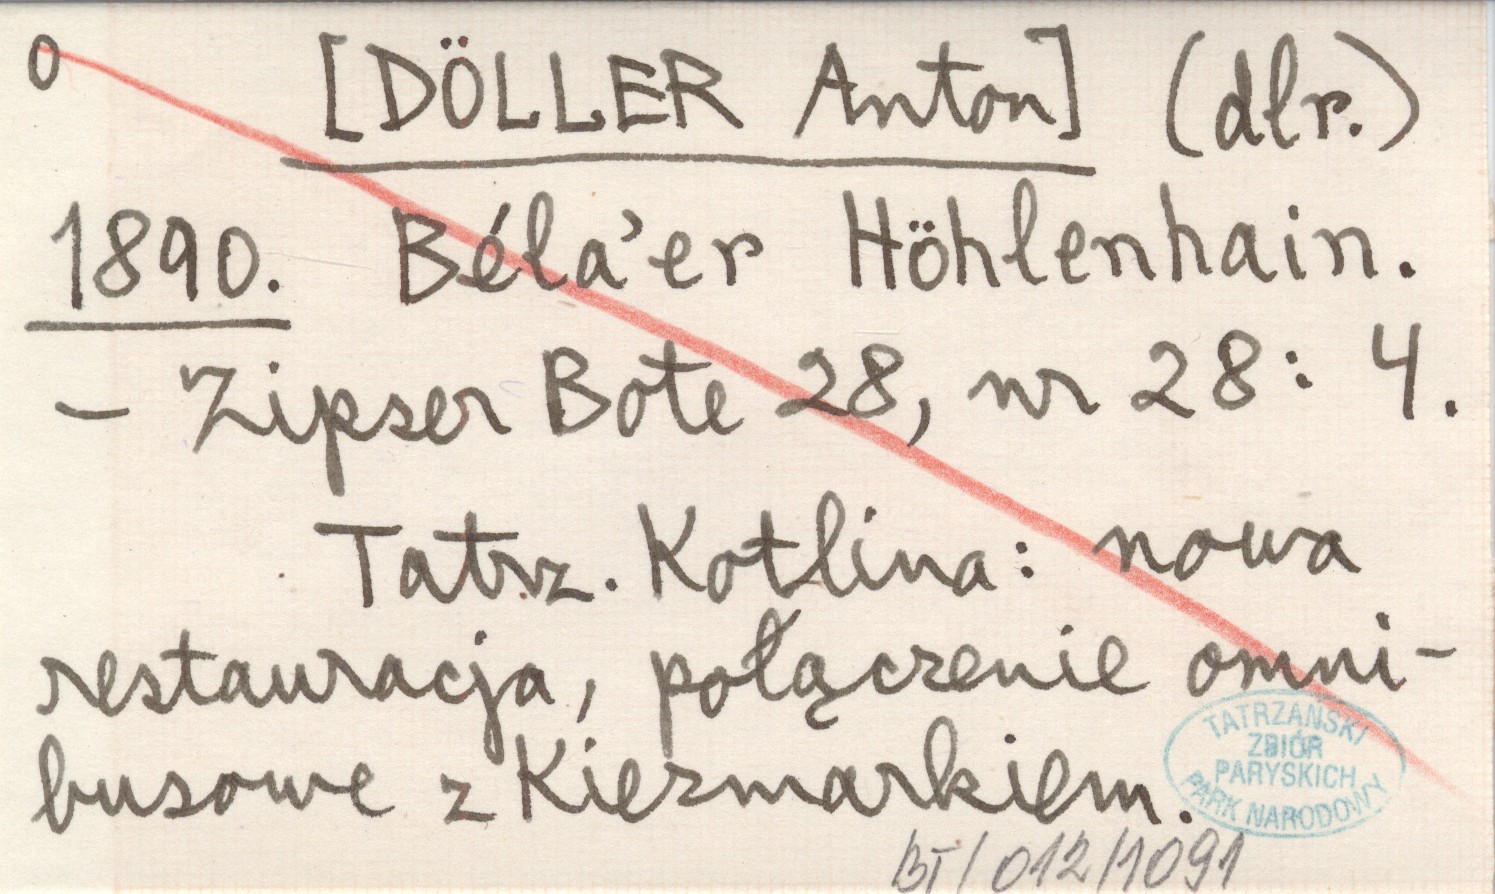 o [DÖLLER Anton] (dlr.)
1890. Béla'er Höhlenhain.
– Zipser Bote 28, nr 28: 4.
Tatrz. Kotlina: nowa
restauracja, połączenie omni-
busowe z Kiezmarkiem.
TATRZAŃSKI
ZBIÓR
PARYSKICH
PARK NARODOWY
BT/012/1091